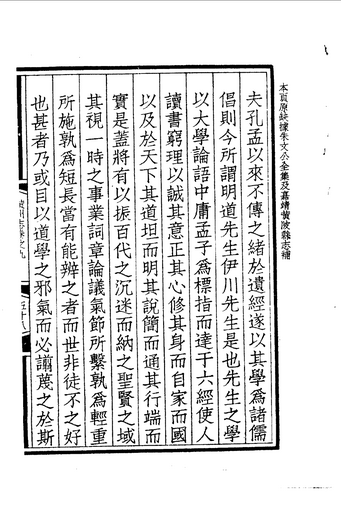 本頁原缺據朱文公全集及嘉靖黄陂縣志補
夫孔孟以來不傳之緒於遺經遂以其學爲諸儒
倡則今所謂明道先生伊川先生是也先生之學
以大學論語中庸孟子爲標指而達于六經使人
讀書窮理以誠其意正其心修其身而自家而國
以及於天下其道坦而明其說簡而通其行端而
實是蓋將有以振百代之沉迷而納之聖賢之域
其視一時之事業詞章論議氣節所繫孰爲輕重
所施孰爲短長當有能辨之者而世非徒不之好
也甚者乃或目以道學之邪氣而必謭蔑之於斯